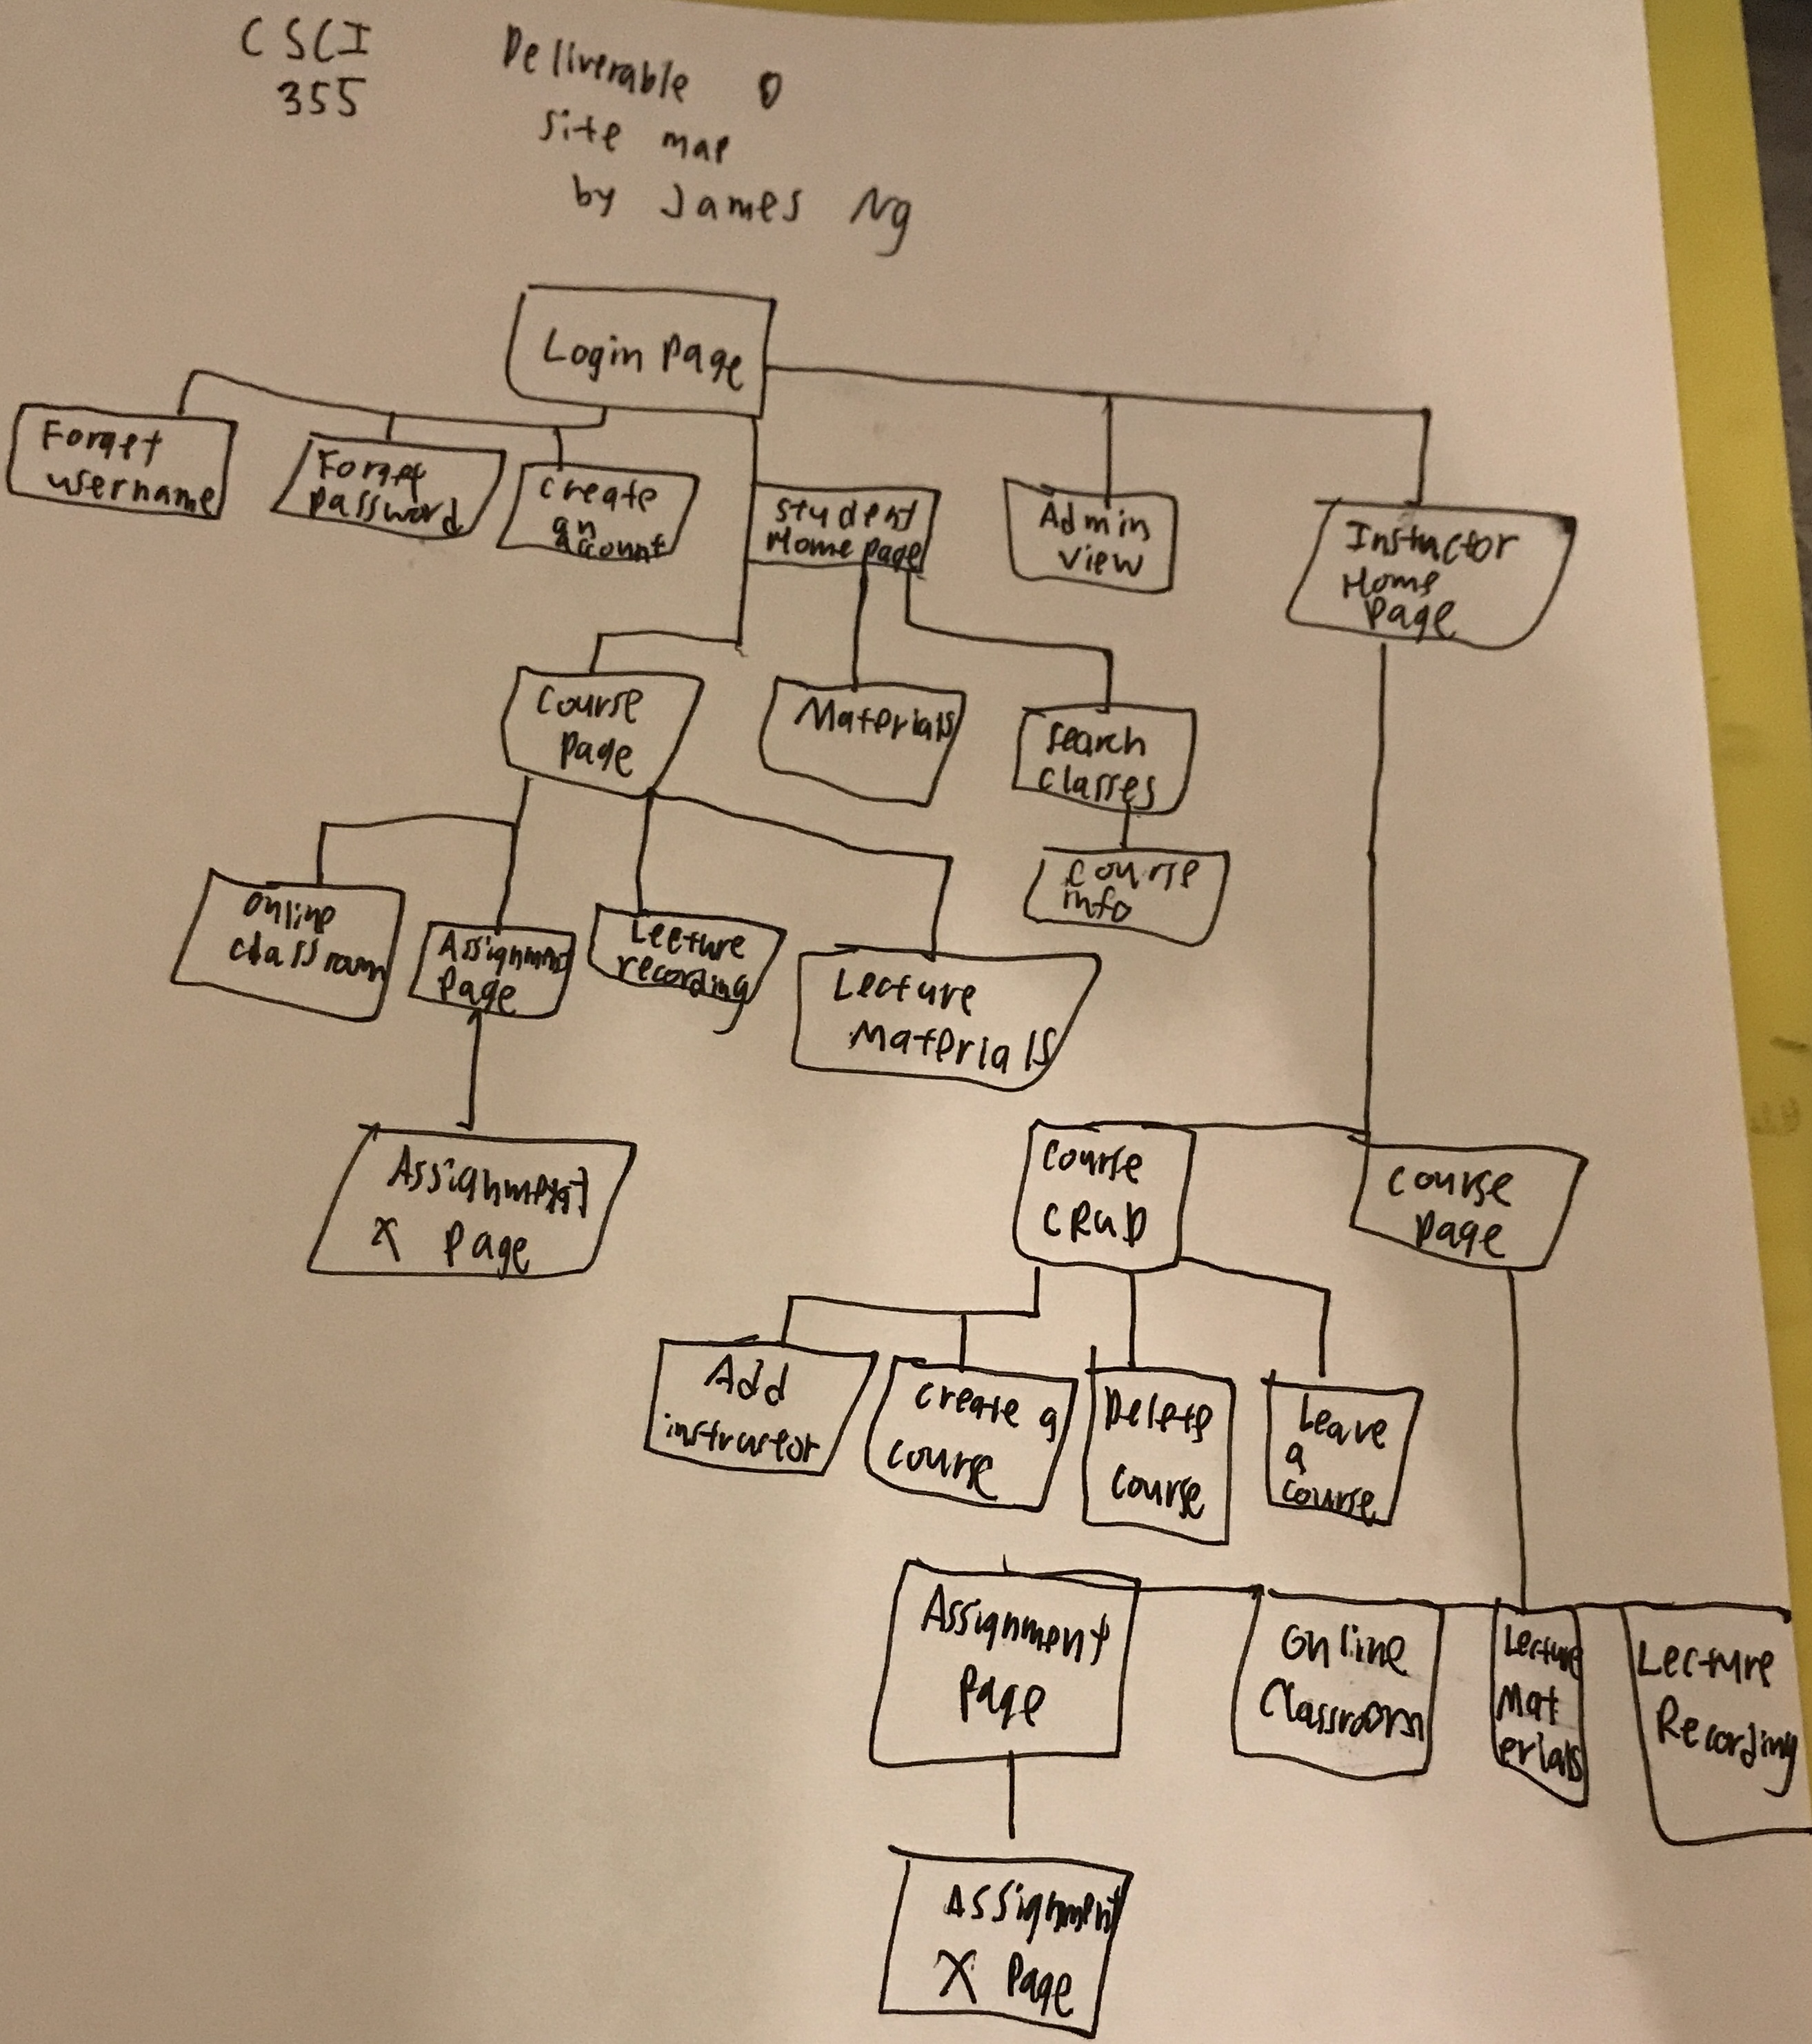 CSCI
355
Deliverable 0
site map
by James Ng
Login Page
Forget
username
Forget
password
create
an
account
student
Home page
Admin
view
Instuctor
Home
Page
Course
Page
Materials
search
classes
course
info
online
classroom
Assignment
Page
Lecture
recording
Lecture
Materials
Assignment
X Page
Course
CRUD
course
page
Add
instructor
create a
course
Delete
course
Leave
a
course
Assignment
Page
Online
Classroom
Lecture
Mat
erials
Lecture
Recording
Assignment
X Page